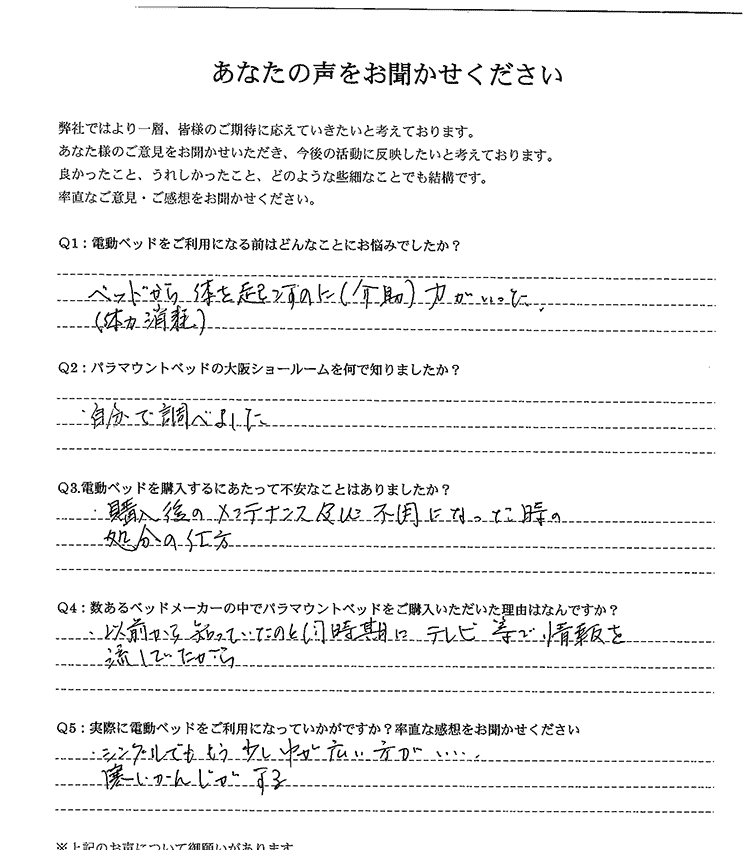 あなたの声をお聞かせください
弊社ではより一層、皆様のご期待に応えていきたいと考えております。
あなた様のご意見をお聞かせいただき、今後の活動に反映したいと考えております。
良かったこと、うれしかったこと、どのような些細なことでも結構です。
率直なご意見・ご感想をお聞かせください。
Q1：電動ベッドをご利用になる前はどんなことにお悩みでしたか？
ベッドから体を起こすのに(介助)力がいった、
(体力消耗)
Q2：パラマウントベッドの大阪ショールームを何で知りましたか？
・自分で調べました
Q3.電動ベッドを購入するにあたって不安なことはありましたか？
・購入後のメンテナンス及び不用になった時の
処分の仕方
Q4：数あるベッドメーカーの中でパラマウントベッドをご購入いただいた理由はなんですか？
・以前から知っていたのと同時期にテレビ等で情報を
流していたから
Q5：実際に電動ベッドをご利用になっていかがですか？率直な感想をお聞かせください
・シングルでももう少し巾が広い方がいい、
寒いかんじがする
※上記のお声について御願いがあります